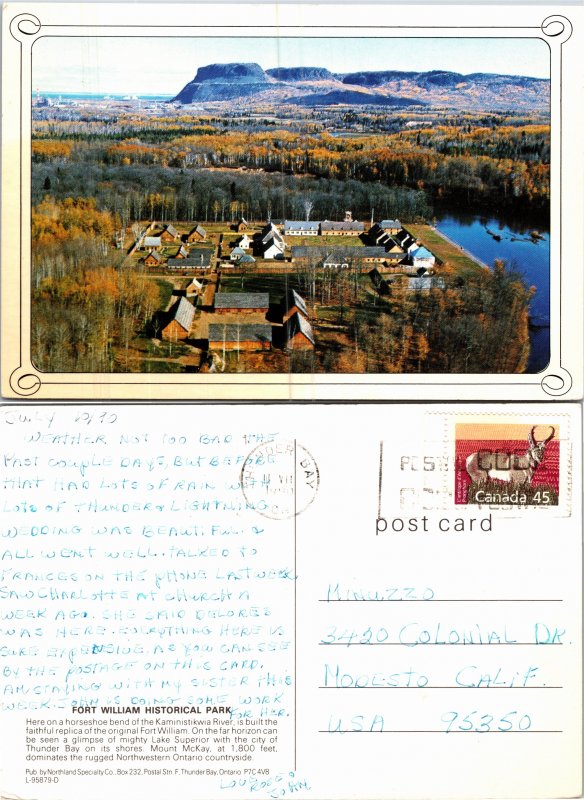 July 10/90
WEATHER NOT TOO BAD THE
PAST COUPLE DAYS, BUT BEFORE
THAT HAD LOTS OF RAIN WITH
LOTS OF THUNDER & LIGHTNING
WEDDING WAS BEAUTIFUL &
ALL WENT WELL. TALKED TO
FRANCES ON THE PHONE LAST WEEK
SAW CHARLOTTE AT CHURCH A
WEEK AGO. SHE SAID DELORES
WAS HERE. EVERYTHING HERE IS
SURE EXPENSIVE. AS YOU CAN SEE
BY THE POSTAGE ON THIS CARD.
AM STAYING WITH MY SISTER THIS
WEEK. JOHN IS DOING SOME WORK
FOR HER.
LOVE
JOHN
FORT WILLIAM HISTORICAL PARK
Here on a horseshoe bend of the Kaministikwa River, is built the
faithful replica of the original Fort William. On the far horizon can
be seen a glimpse of mighty Lake Superior with the city of
Thunder Bay on its shores. Mount McKay, at 1,800 feet,
dominates the rugged Northwestern Ontario countryside.
Pub. by Northland Specialty Co., Box 232, Postal Stn. F, Thunder Bay, Ontario P7C 4V8
L-95879-D
THUNDER BAY
POST
CODE
Canada 45
post card
MINUZZO
3420 COLONIAL DR.
MODESTO CALIF.
USA 95350